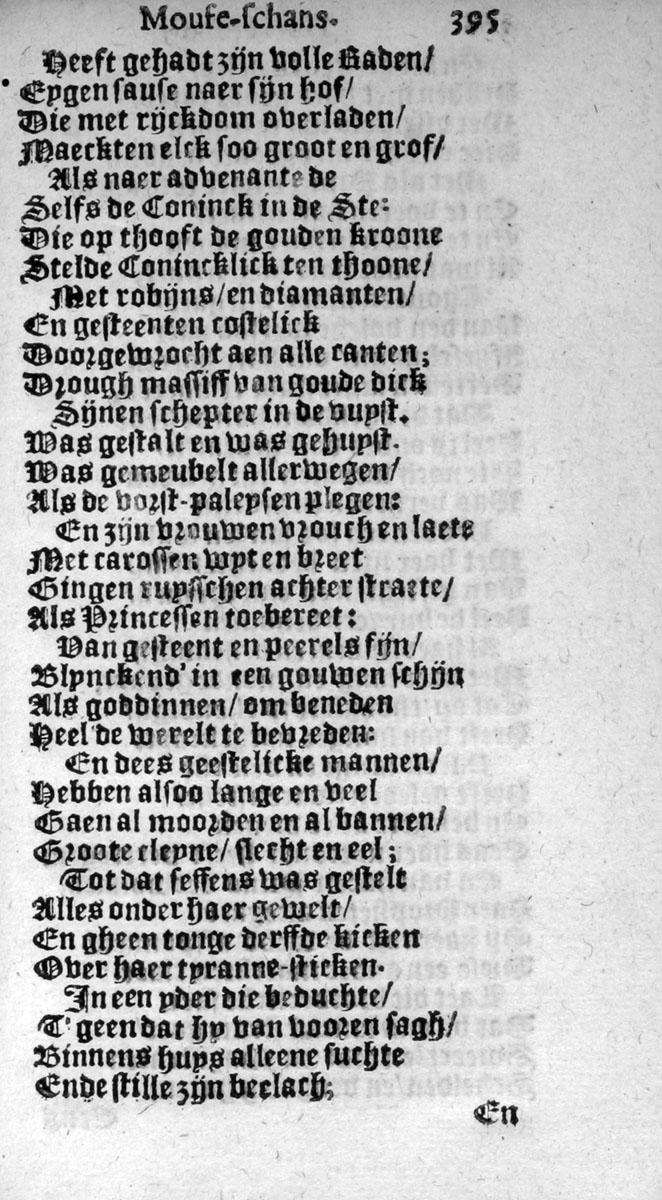 Mouse-schans. 395
Heeft gehadt zijn volle Raden/
Eygen sause naer sijn hof/
Die met rijckdom overladen/
Maeckten elck soo groot en grof/
Als naer advenante de
Selfs de Coninck in de Ste:
Die op thooft de gouden kroone
Stelde Conincklick ten thoone/
Met robijns/en diamanten/
En gesteenten costelick
Doorgewrocht aen alle canten;
Drough massiff van goude dick
Sijnen schepter in de vuyst.
Was gestalt en was gehuyst.
Was gemeubelt allerwegen/
Als de vorst-paleysen plegen:
En zijn vrouwen vrouch en laets
Met carossen wyt en breet
Gingen ruysschen achter straete/
Als Princessen toebereet:
Van gesteent en peerels fijn/
Blynckend' in een gouwen schijn
Als goddinnen/ om beneden
Heel de werelt te bevreden:
En dees geestelicke mannen/
Hebben alsoo lange en veel
Gaen al moorden en al bannen/
Groote cleyne/ slecht en eel;
Tot dat seffens was gestelt
Alles onder haer gewelt/
En gheen tonge derffde kicken
Over haer tyranne-sticken.
In een yder die beduchte/
T'geen dat hy van vooren sagh/
Binnens huys alleene suchte
Ende stille zijn beclach;
En